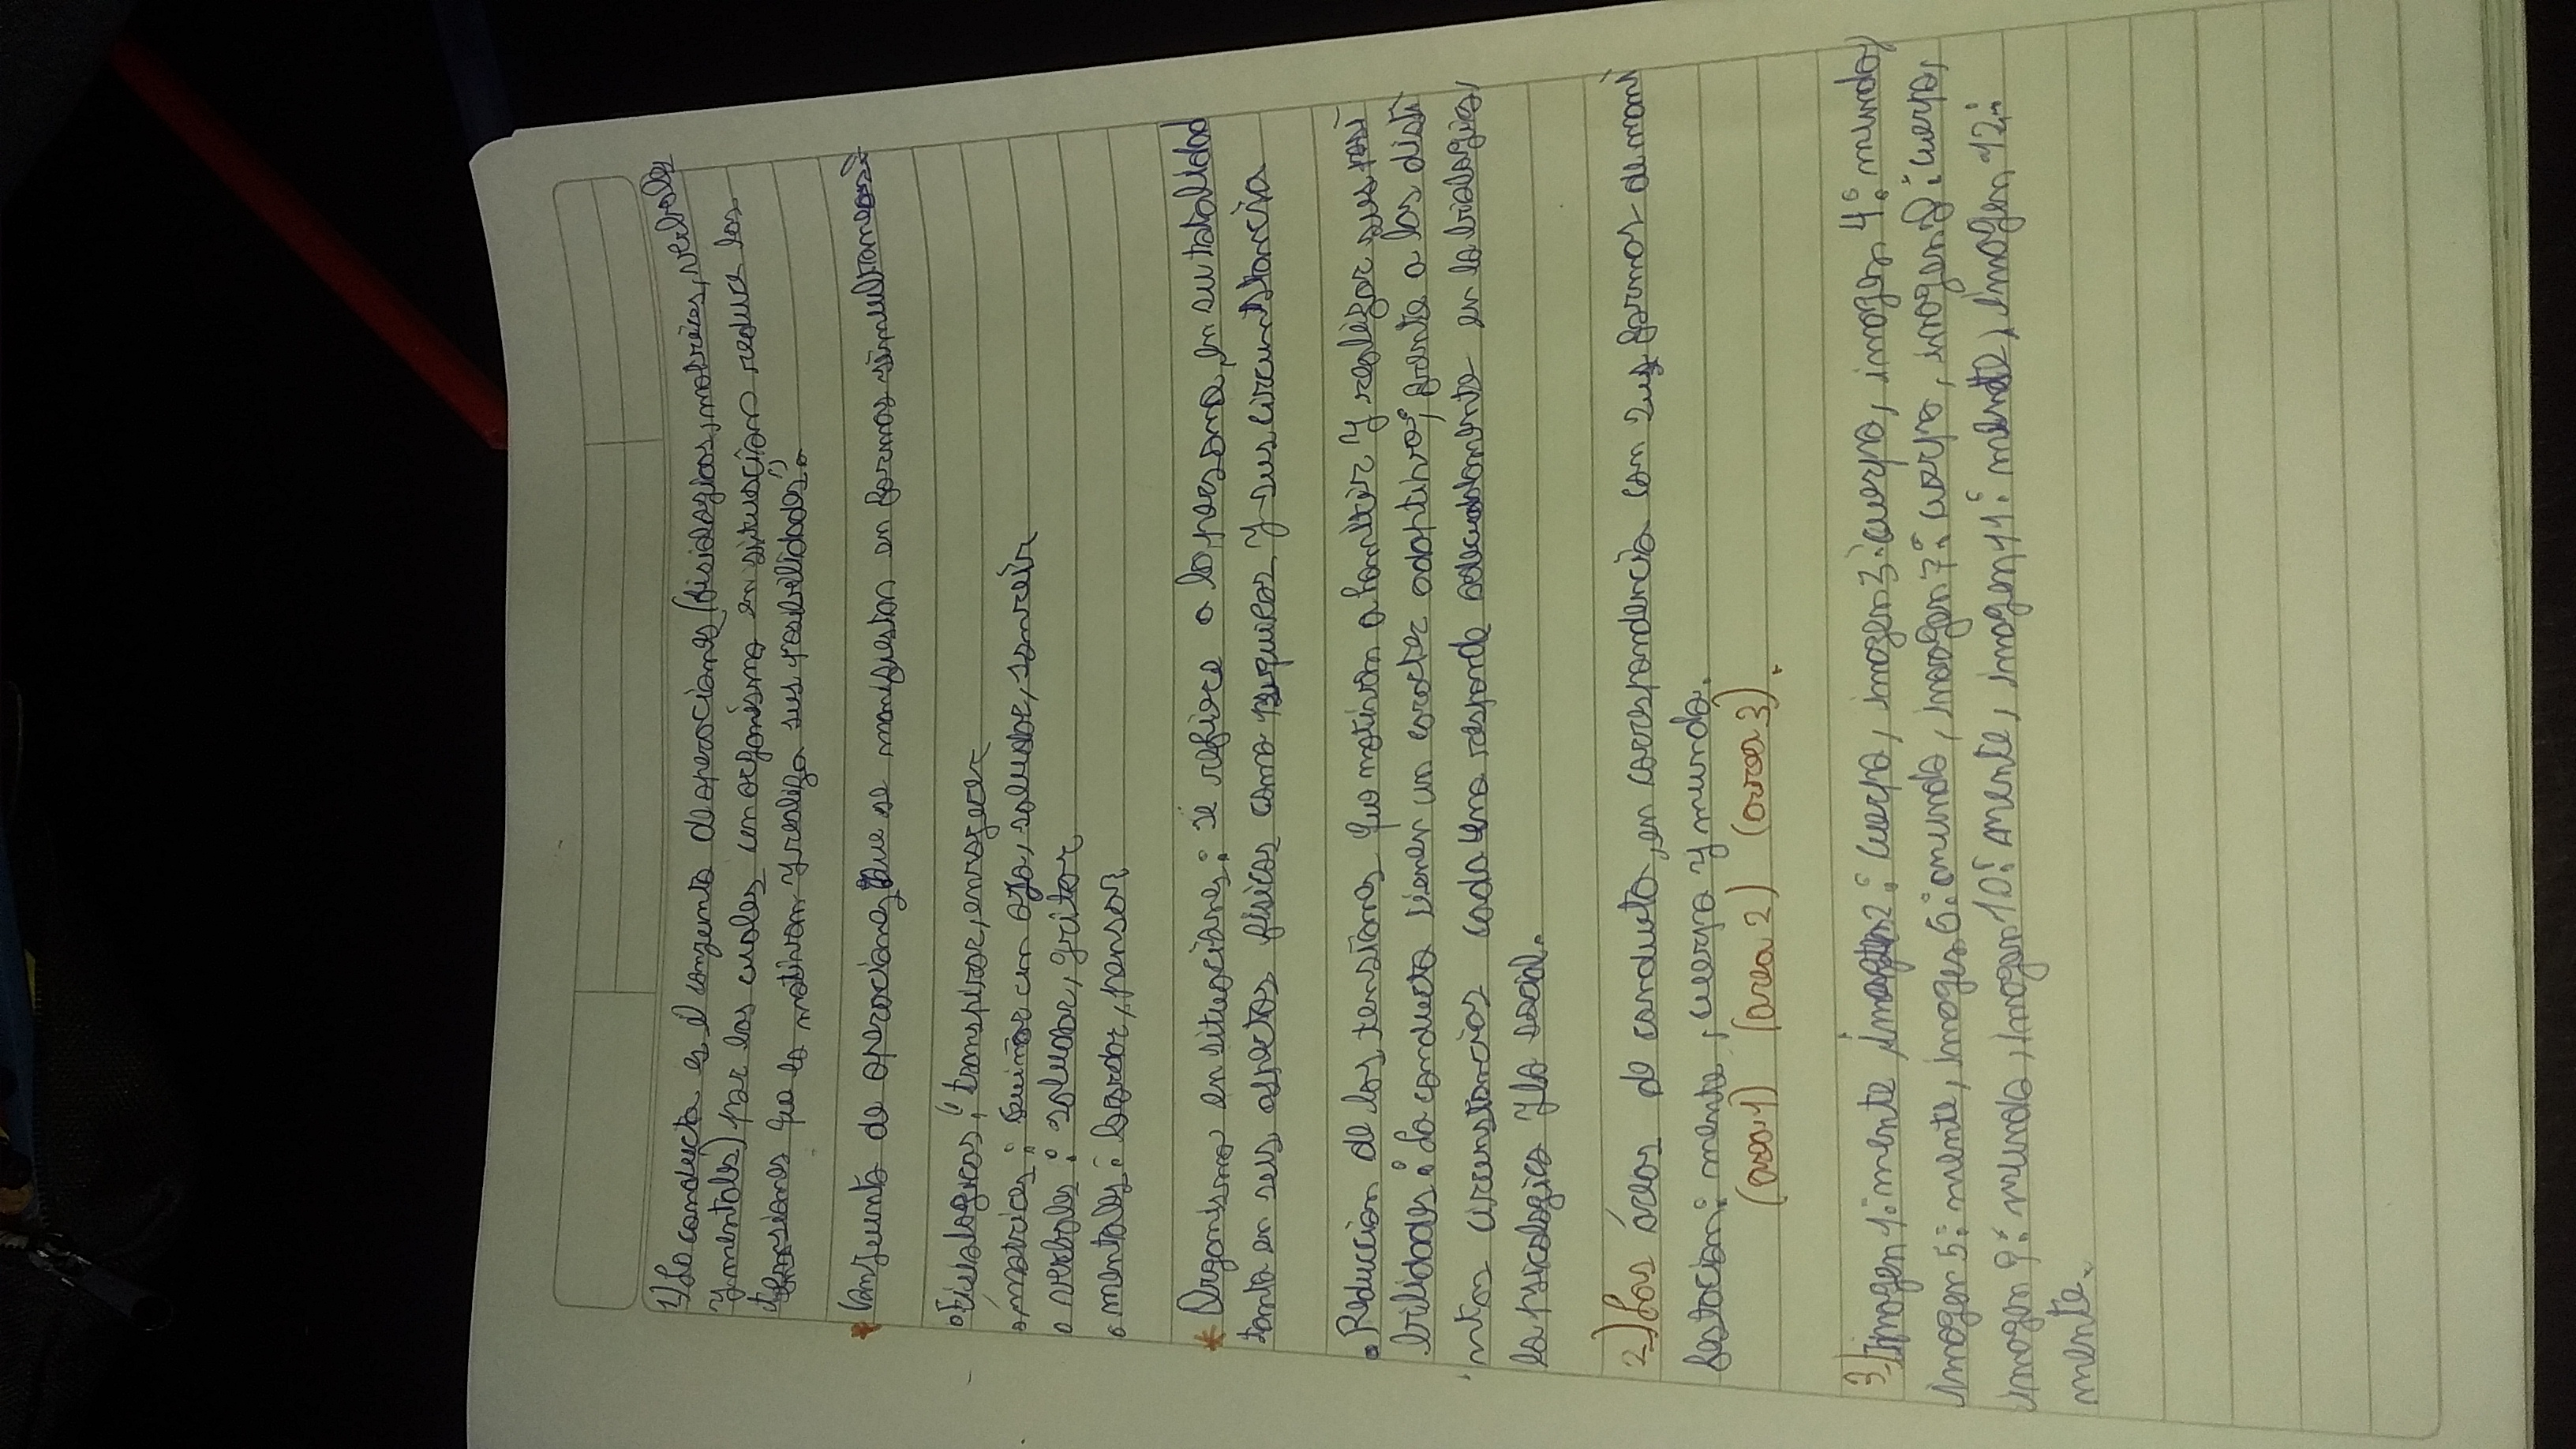 1) La conducta es el conjunto de operaciones (fisiologicas, motrices, verbales
y mentales) por las cuales un organismo en situacion reduce las
tensiones que lo motivan y realiza sus posibilidades.
* Conjunto de operaciones que se manifiestan en formas simultaneas:
• Fisiologicas: transpirar, enrojecer
• motrices: guiñar un ojo, saludar, sonreir
• verbales: saludar, gritar
• mentales: pensar
* Organismo en situaciones: Se refiere a la persona, en su totalidad
tanto en sus aspectos físicos como psíquicos y sus circunstancia
• Reduccion de las tensiones que motivan a y realizar sus posi
bilidades: La conducta tienen un caracter adaptivo; frente a las disti
ntas circunstancias cada una responde adecuadamente en la biologica,
la psicologica y la social.
2) Los actos de conducta, en correspondencia con sus formas de mani
festacion: mente, cuerpo y mundo.
(area 1) (area 2) (area 3).
3) Imagen 1: mente imagen 2: cuerpo, imagen 3: cuerpo, imagen 4: mundo,
imagen 5: mente, imagen 6: mundo, imagen 7: cuerpo, imagen 8: cuerpo,
imagen 9: mundo, imagen 10: mente, imagen 11: mente, imagen 12:
mente.